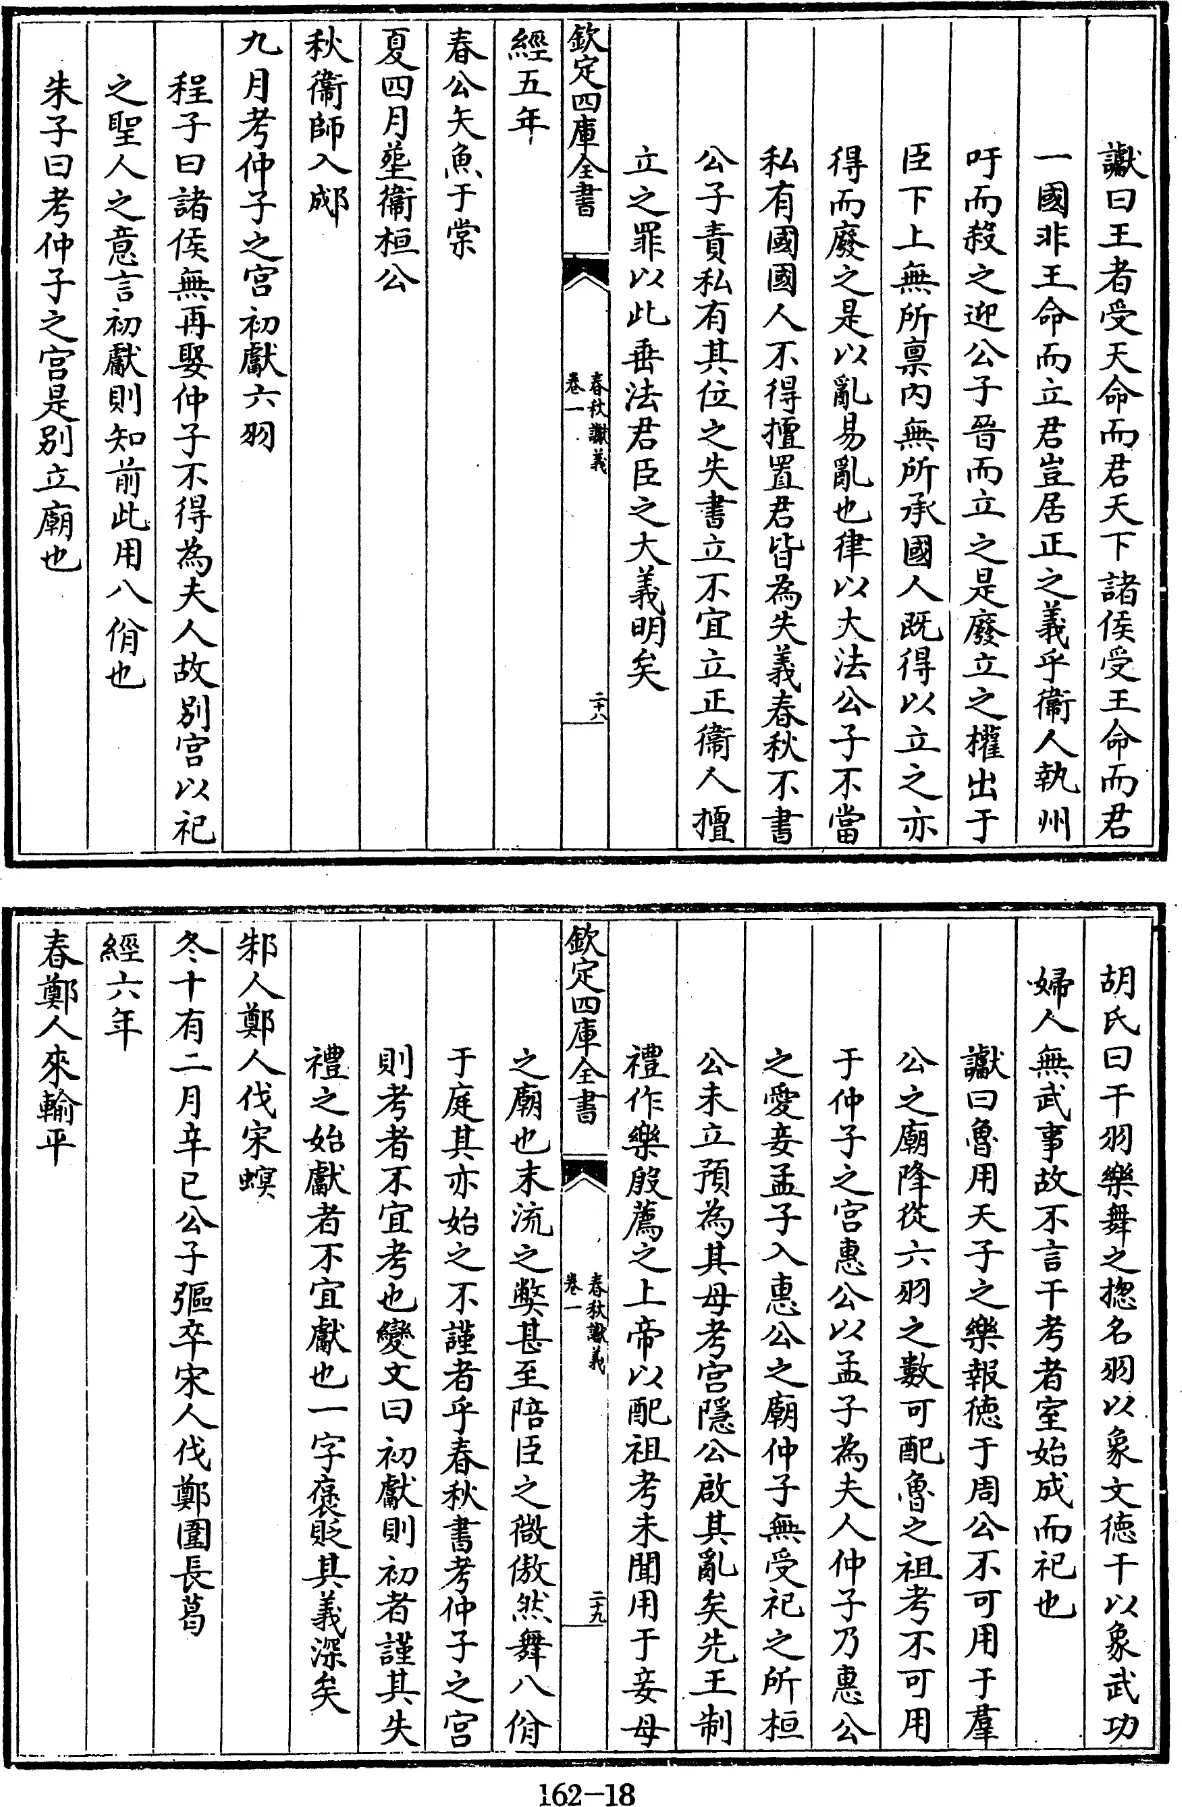 讞曰王者受天命而君天下諸侯受王命而君
一國非王命而立君豈居正之義乎衞人執州
吁而殺之迎公子晉而立之是廢立之權出于
臣下上無所禀内無所承國人既得以立之亦
得而廢之是以亂易亂也律以大法公子不當
私有國國人不得擅置君皆為失義春秋不書
公子責私有其位之失書立不宜立正衞人擅
立之罪以此垂法君臣之大義明矣
欽定四庫全書
春秋讞義
卷一
二十八
經五年
春公矢魚于棠
夏四月塟衞桓公
秋衞師入郕
九月考仲子之宫初獻六羽
程子曰諸侯無再娶仲子不得為夫人故别宫以祀
之聖人之意言初獻則知前此用八佾也
朱子曰考仲子之宫是别立廟也
胡氏曰干羽樂舞之揔名羽以象文徳干以象武功
婦人無武事故不言干考者室始成而祀也
讞曰魯用天子之樂報徳于周公不可用于羣
公之廟降從六羽之數可配魯之祖考不可用
于仲子之宫惠公以孟子為夫人仲子乃惠公
之愛妾孟子入惠公之廟仲子無受祀之所桓
公未立預為其母考宫隱公啟其亂矣先王制
禮作樂殷薦之上帝以配祖考未聞用于妾母
欽定四庫全書
春秋讞義
卷一
二十九
之廟也末流之弊甚至陪臣之微傲然舞八佾
于庭其亦始之不謹者乎春秋書考仲子之宫
則考者不宜考也變文曰初獻則初者謹其失
禮之始獻者不宜獻也一字褒貶其義深矣
邾人鄭人伐宋螟
冬十有二月辛巳公子彄卒宋人伐鄭圍長葛
經六年
春鄭人來輸平
162-18